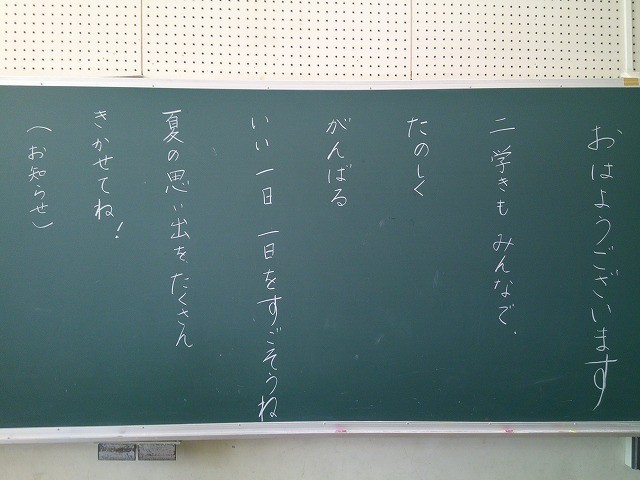 おはようございます
二学きも みんなで、
たのしく
がんばる
いい 一日 一日をすごそうね
夏の思い出を たくさん
きかせてね!
(お知らせ)